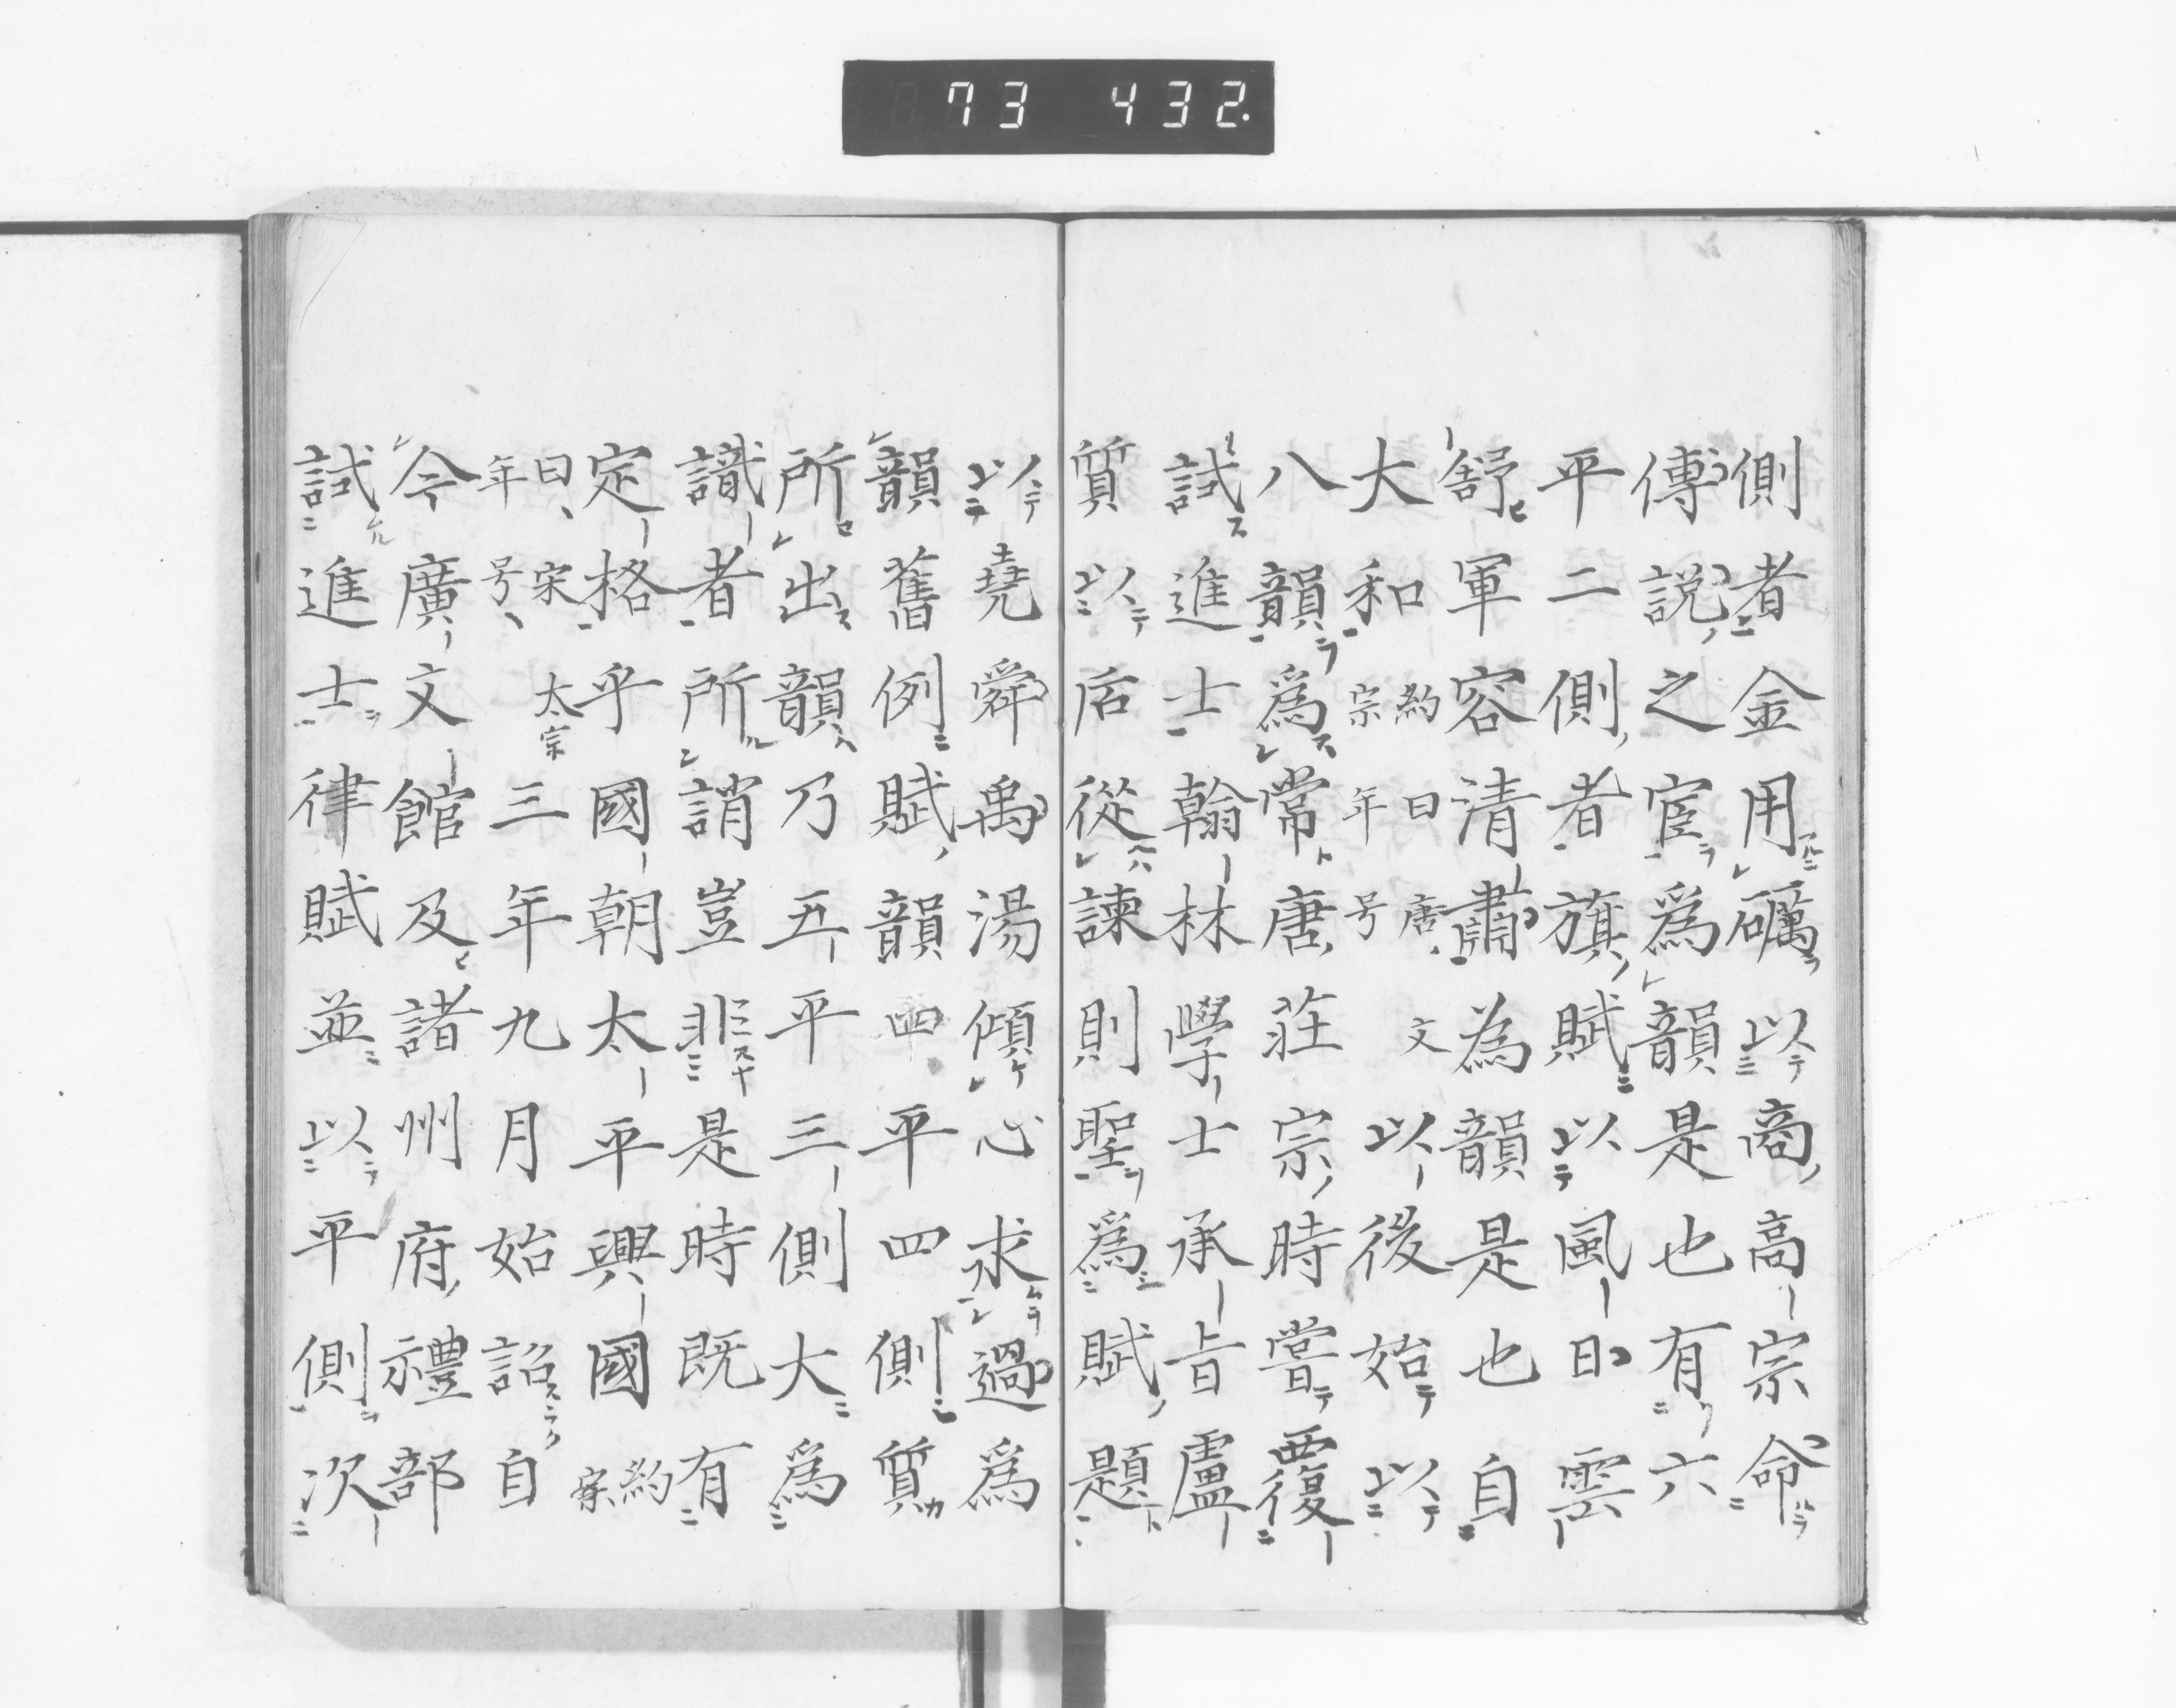 73 432.
側者金用礪以商高宗命
傅說之宦為韻是也有六
平二側者旗賦以風日雲
舒軍容清肅為韻是也自
大和約宗年号曰唐文以後始以
八韻為常唐莊宗時嘗覆
試進士翰林學士承旨盧
質以后從諫則聖為賦題
以堯舜禹湯傾心求過為
韻舊例賦韻四平四側質
所出韻乃五平三側大為
識者所誚豈非是時既有
定格乎國朝太平興國約宗
年号曰宋太宗三年九月始詔自
今廣文館及諸州府禮部
試進士律賦並以平側次